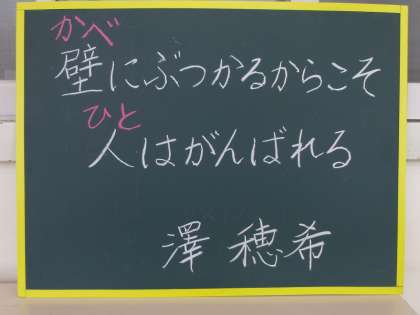 かべ
壁にぶつかるからこそ
ひと
人はがんばれる
澤 穂希